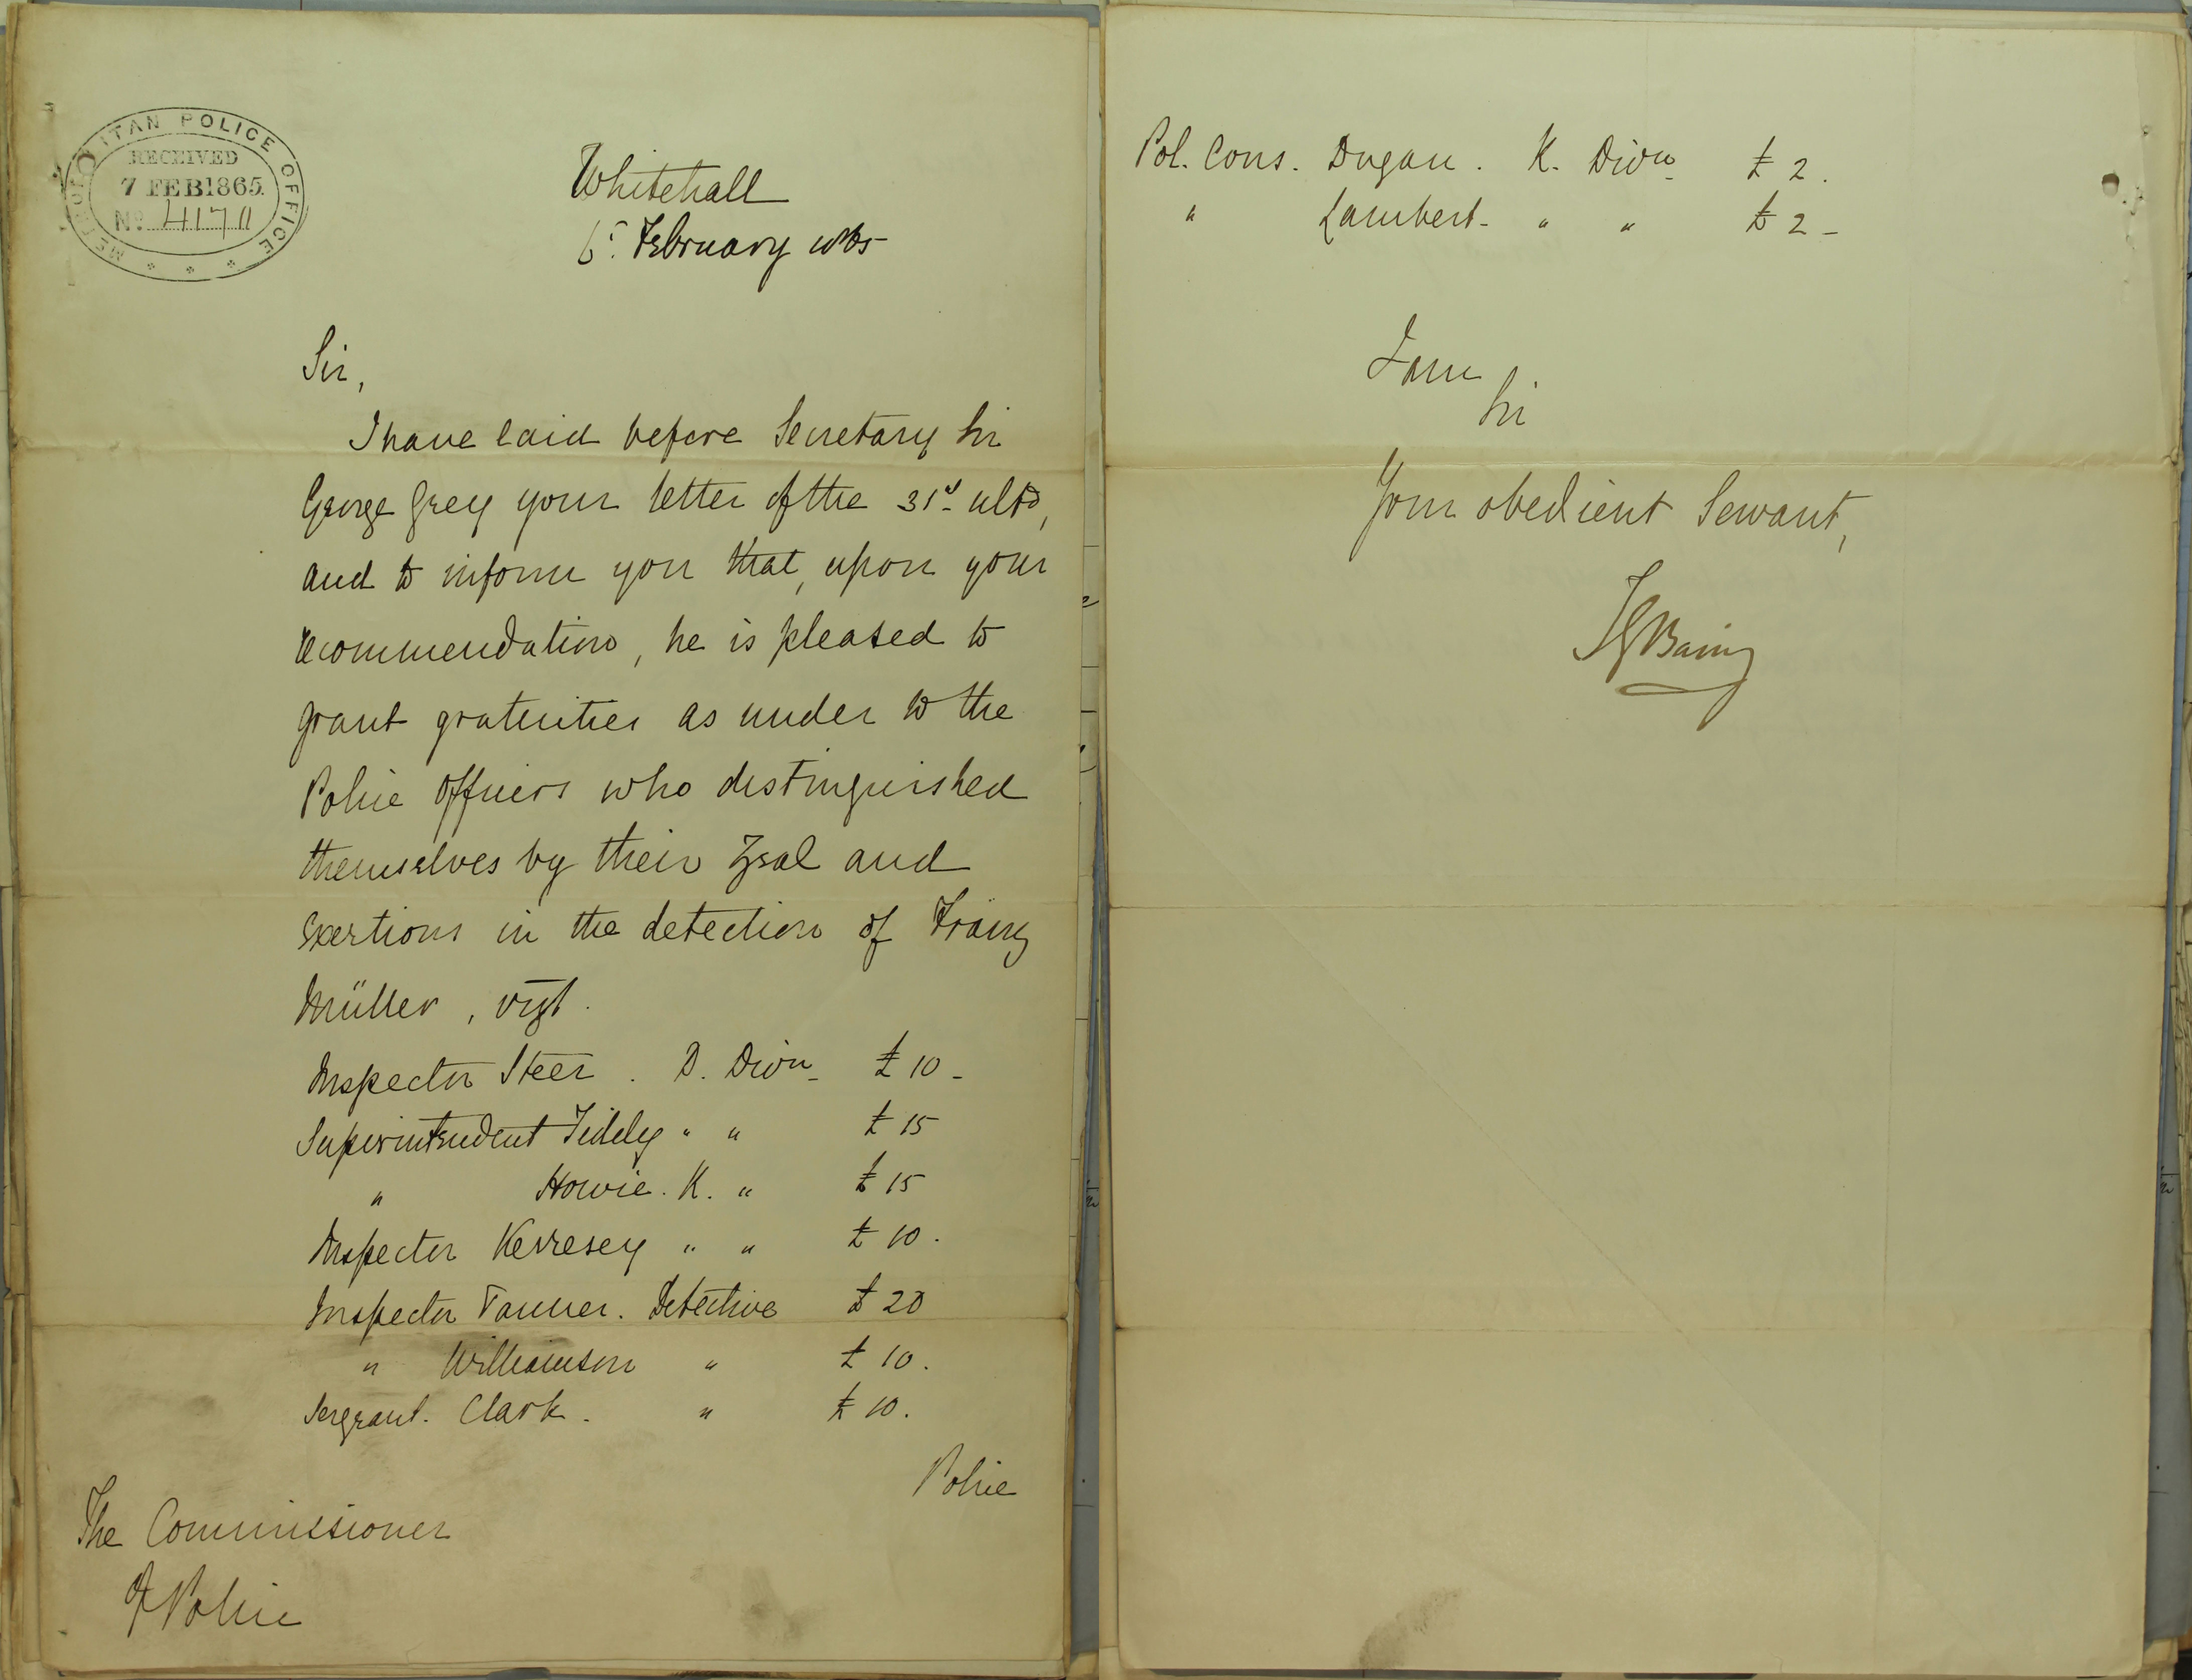 METROPOLITAN POLICE OFFICE
RECEIVED
7 FEB 1865
No. 41711
Whitehall
6. February 1865
Sir,
I have laid before Secretary Sir
George Grey your letter of the 31st ulto,
and to inform you that, upon your
recommendation, he is pleased to
grant gratuities as under to the
Police Officers who distinguished
themselves by their zeal and
exertions in the detection of Franz
Müller, vizt.
Inspector Steer. D. Divn £10 -
Superintendent Tiddey " " £15
" Howie. K. " £15
Inspector Kerresey " " £10.
Inspector Tanner. Detective £20
" Williamson " £10.
Sergeant. Clark. " £10.
Police
The Commissioner
of Police
Pol. Cons. Dugan. K. Divn £2.
" Lambert - " " £2 -
I am
Sir
Your obedient Servant,
TGBaring